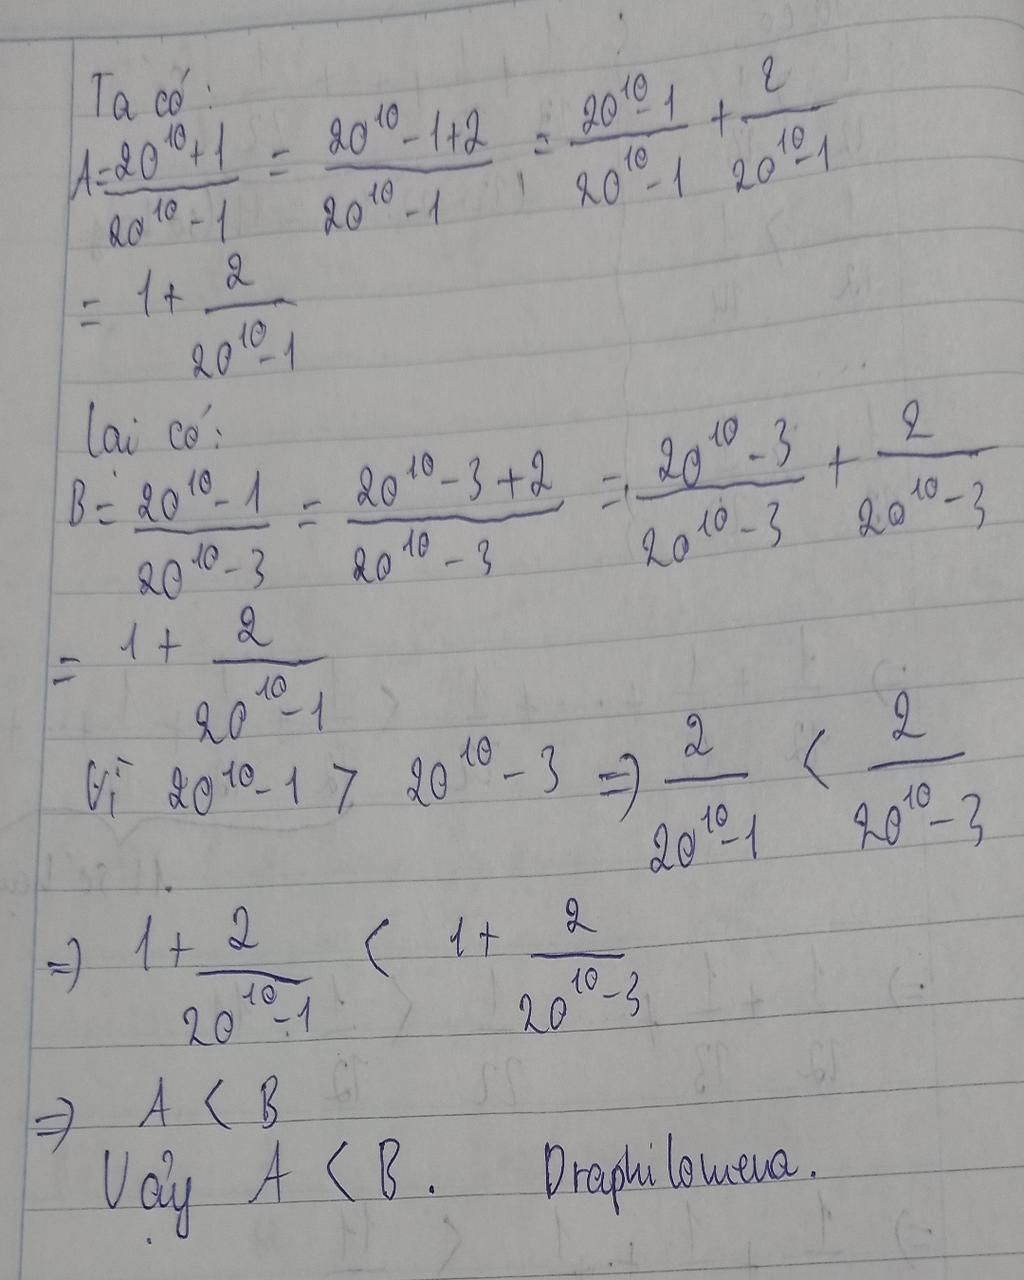 Ta có:
A = \frac{20^{10}+1}{20^{10}-1} = \frac{20^{10}-1+2}{20^{10}-1} = \frac{20^{10}-1}{20^{10}-1} + \frac{2}{20^{10}-1}
= 1 + \frac{2}{20^{10}-1}
lại có:
B = \frac{20^{10}-1}{20^{10}-3} = \frac{20^{10}-3+2}{20^{10}-3} = \frac{20^{10}-3}{20^{10}-3} + \frac{2}{20^{10}-3}
= 1 + \frac{2}{20^{10}-1}
Vì 20^{10}-1 > 20^{10}-3 => \frac{2}{20^{10}-1} < \frac{2}{20^{10}-3}
=> 1 + \frac{2}{20^{10}-1} < 1 + \frac{2}{20^{10}-3}
=> A < B
Vậy A < B. Draphilomena.